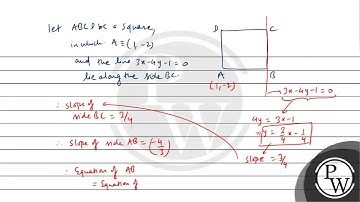 let ABCD be a square,
in which A ≡ (1, -2)
and the line 3x-4y-1=0
lie along the side BC.
D C
A B
(1, -2)
3x-4y-1=0
4y = 3x-1
y = 3/4 x - 1/4
slope = 3/4
∴ slope of
side BC = 3/4
∴ slope of side AB = (-4/3)
∴ Equation of AB
= Equation of
PW